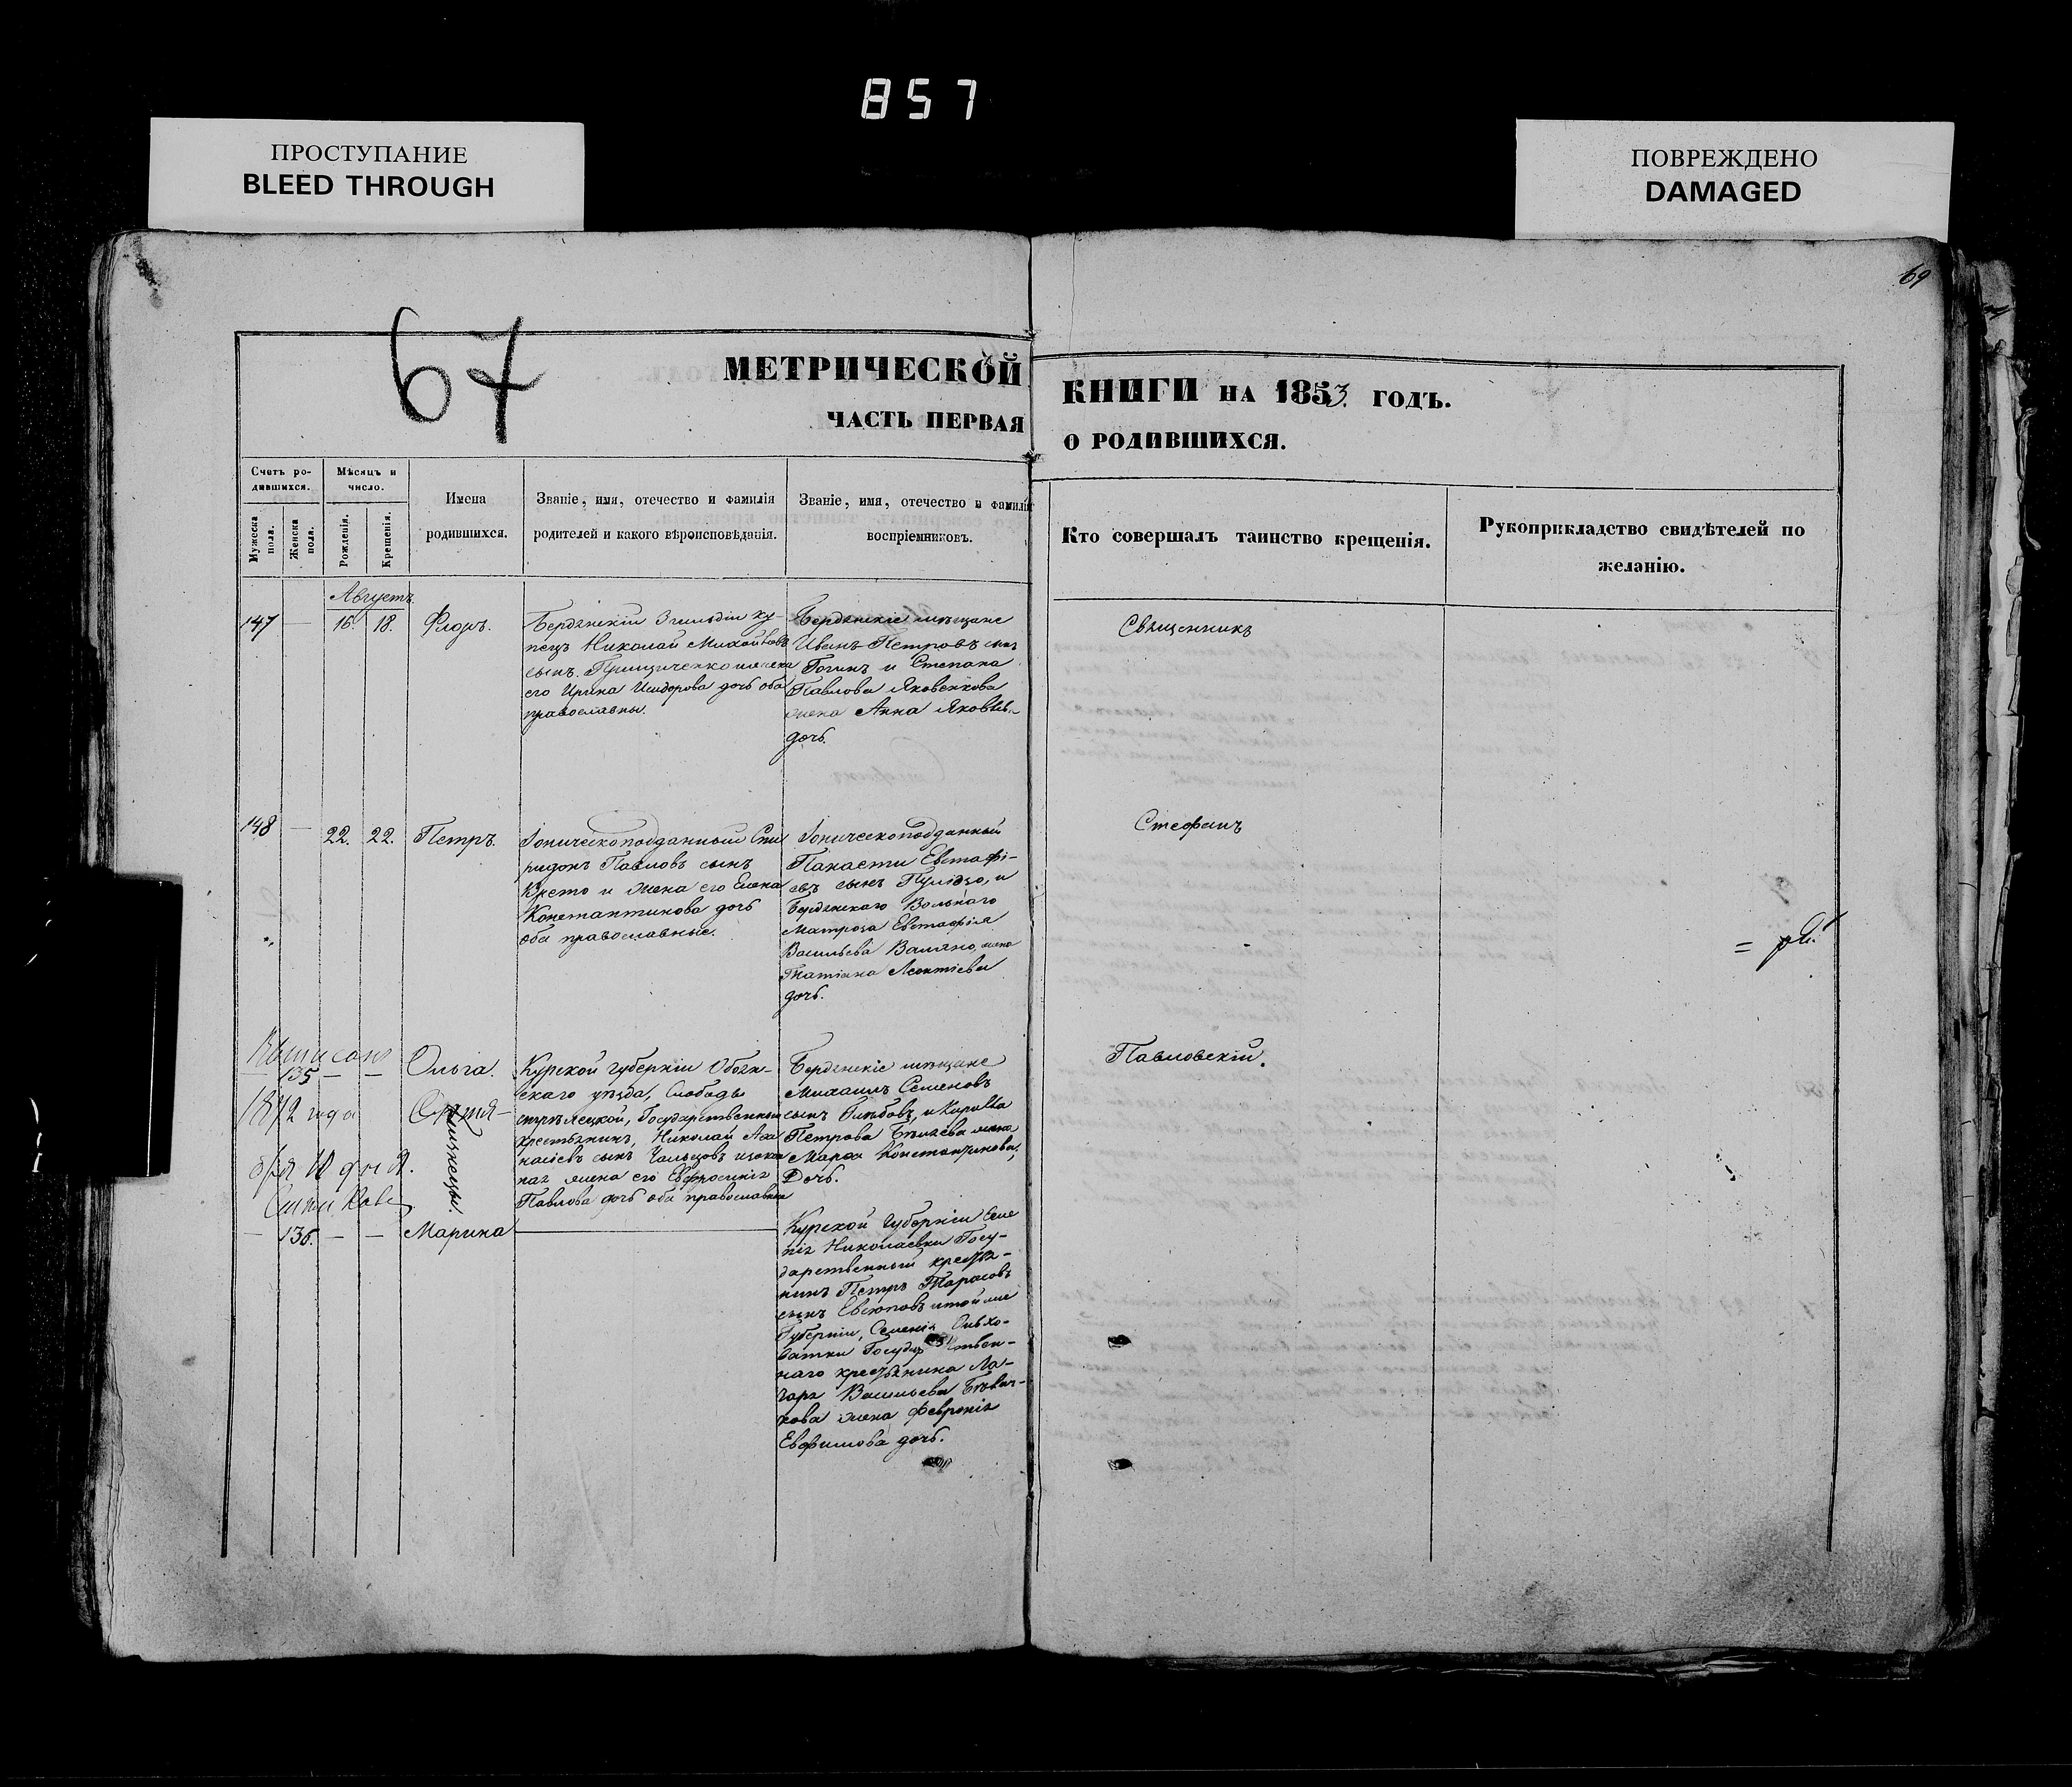 857
ПРОСТУПАНИЕ
BLEED THROUGH
ПОВРЕЖДЕНО
DAMAGED
69
67
МЕТРИЧЕСКОЙ
КНИГИ НА 1853. ГОДЪ.
ЧАСТЬ ПЕРВАЯ
О РОДИВШИХСЯ.
Счетъ ро-
дившихся.
Мужеска
пола.
Женска
пола.
Мѣсяцъ и
число.
Рожденія.
Крещенія.
Имена
родившихся.
Званіе, имя, отечество и фамилія
родителей и какого вѣроисповѣданія.
Званіе, имя, отечество и фамилія
воспріемниковъ.
Кто совершалъ таинство крещенія.
Рукоприкладство свидѣтелей по
желанію.
Августъ.
147 — 16. 18. Флоръ.
Бердянскій 3 гильдіи ку-
пецъ Николай Михайловъ
сынъ жена
его Ирина Исидорова дочь оба
православны.
Бердянскіе мѣщане
Иванъ Петровъ сынъ
и Степана
Павлова Яковенкова
жена Анна Яковле
дочь.
Священникъ
148 — 22. 22. Петръ.
Іоническоподданный Спи
ридонъ Павловъ сынъ
Крето и жена его Елена
Константинова дочь
оба православные.
Іоническоподданный
Панаети Евстафі-
евъ сынъ и
Бердянскаго Вольнаго
Матроза Евстафія
Васильева Валяно, жена
Татіана Леонтіева
дочь.
Стефанъ
Выписано
135 — —
1872 года
10 дня.
Ольга.
Близнецы.
Курской губерніи Обоян-
скаго уѣзда, Слободы
Государственный
крестьянинъ, Николай Аѳа
насіевъ сынъ
ная жена его Евфросинія
Павлова дочь оба православны
Бердянскіе мѣщане
Михаилъ Семеновъ
сынъ Глѣбовъ, и Кирилла
Петрова Бѣляева жена
Марѳа Константинова,
Дочь.
Павловскій.
— 136. — — Марина
Курской Губерніи Селе
нія Николаевки Госу-
дарственный крестья-
нинъ Петръ Тарасовъ
сынъ Евсюковъ и той же
Губерніи, Селенія Ольхо-
ватки Государствен-
наго крестьянина Ла-
заря Васильева
жена Февронія
Евфимова дочь.